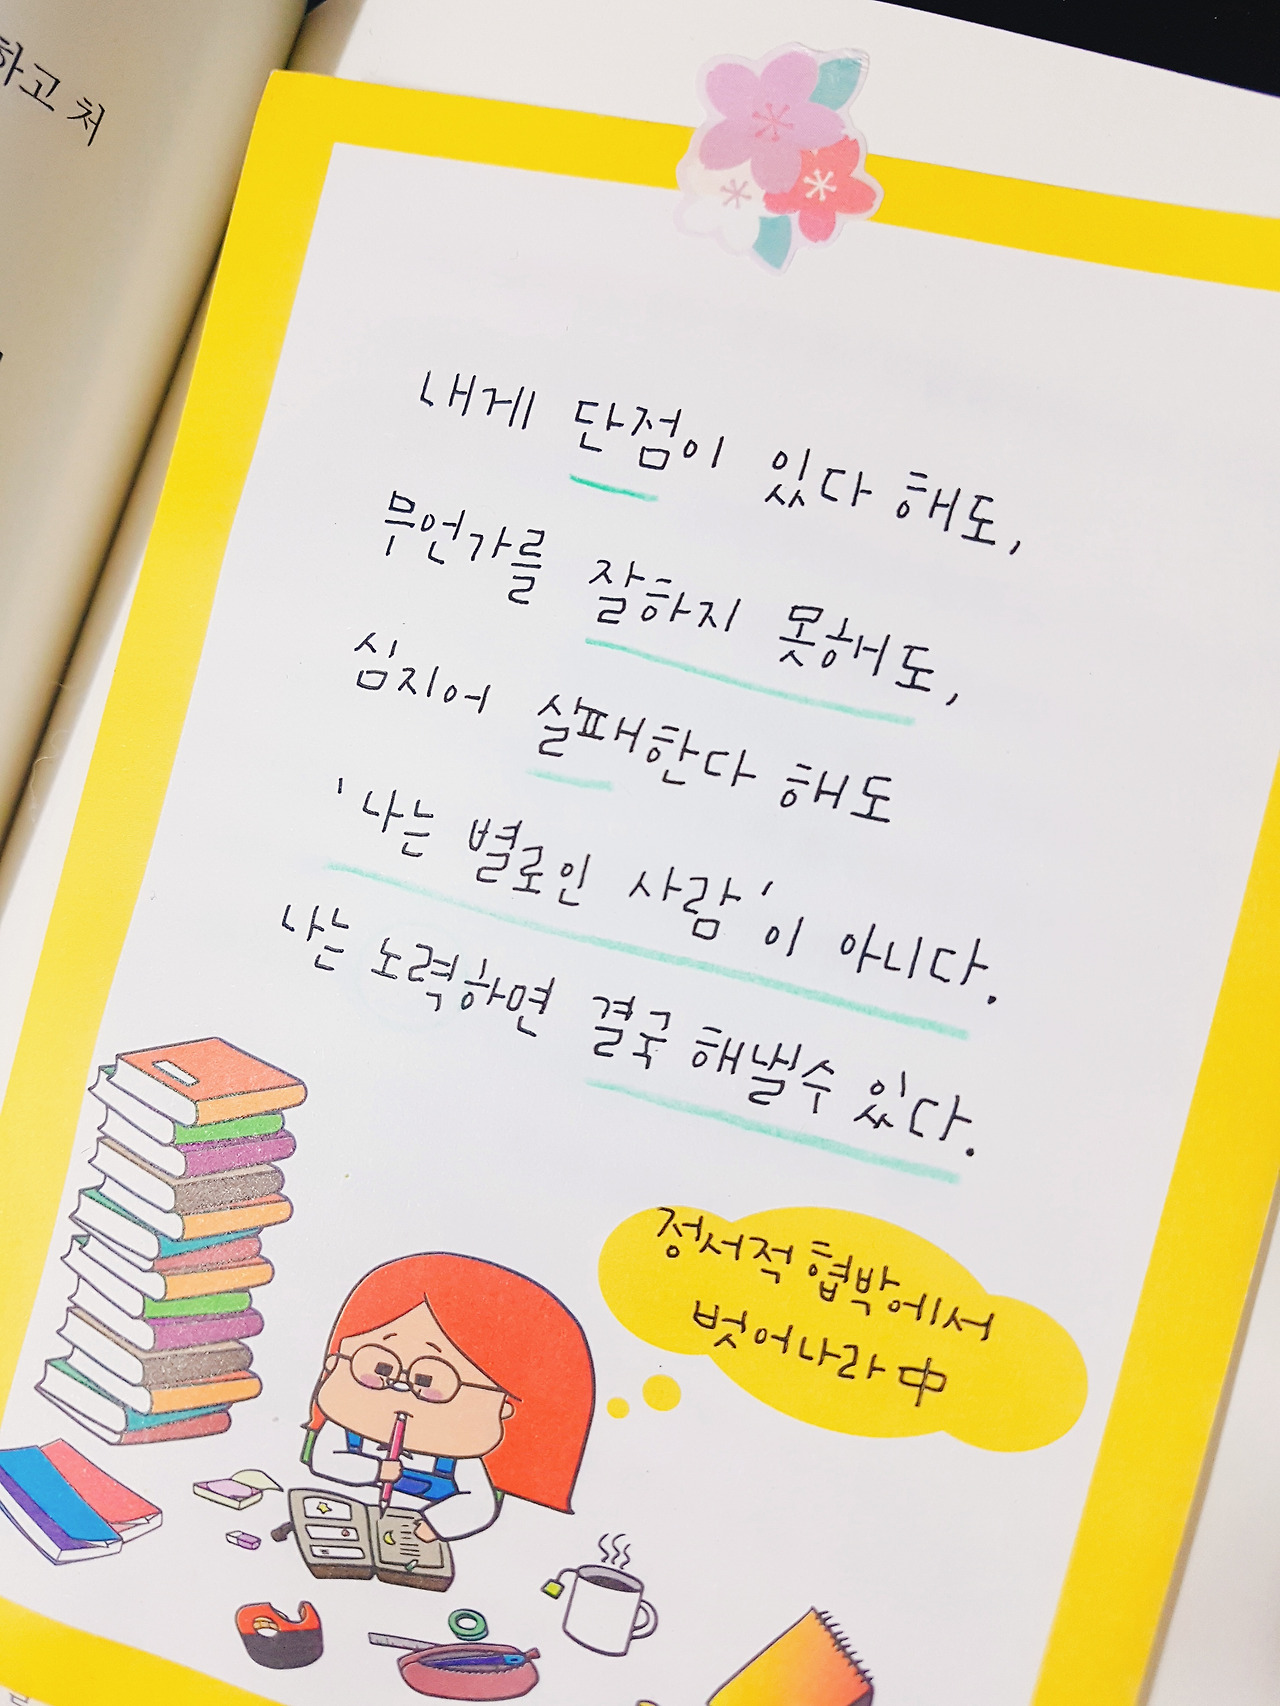 하고 처
내게 단점이 있다 해도,
무언가를 잘하지 못해도,
심지어 실패한다 해도
'나는 별로인 사람'이 아니다.
나는 노력하면 결국 해낼수 있다.
정서적 협박에서
벗어나라 中